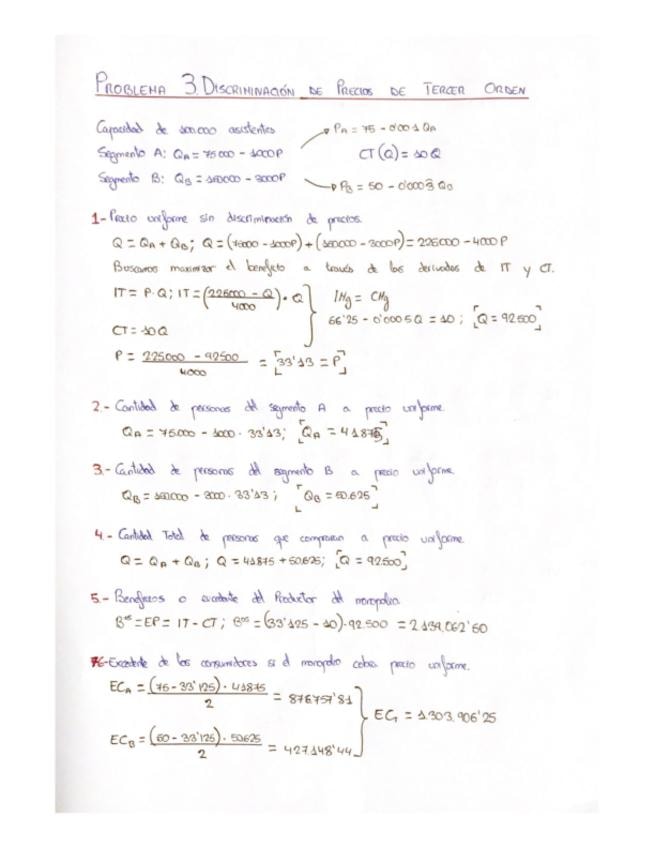 PROBLEMA 3. DISCRIMINACIÓN DE PRECIOS DE TERCER ORDEN
Capacidad de 100.000 asistentes
PA = 75 - 0'001 QA
Segmento A: QA = 75000 - 1000P
CT(Q) = 10Q
Segmento B: QB = 150000 - 3000P
PB = 50 - 0'0003̂ QB
1- Precio uniforme sin discriminación de precios.
Q = QA + QB; Q = (75000 - 1000P) + (150000 - 3000P) = 225000 - 4000P
Buscamos maximizar el beneficio a través de las derivadas de IT y CT.
IT = P·Q; IT = (225000 - Q / 4000)·Q
IMg = CMg
56'25 - 0'0005Q = 10; [Q = 92500]
CT = 10Q
P = 225000 - 92500 / 4000 = [33'13 = P]
2.- Cantidad de personas del segmento A a precio uniforme.
QA = 75.000 - 1000 · 33'13; [QA = 41875]
3.- Cantidad de personas del segmento B a precio uniforme
QB = 150.000 - 3000 · 33'13; [QB = 50.625]
4.- Cantidad Total de personas que compraran a precio uniforme.
Q = QA + QB; Q = 41875 + 50.625; [Q = 92.500]
5.- Beneficios o excedente del Productor del monopolio.
Bos = EP = IT - CT; Bos = (33'125 - 10)·92.500 = 2.139.062'50
6- Excedente de los consumidores si el monopolio cobra precio uniforme.
ECA = (75 - 33'125)·41875 / 2 = 876.757'81
ECT = 1.303.906'25
ECB = (50 - 33'125)·50.625 / 2 = 427.148'44